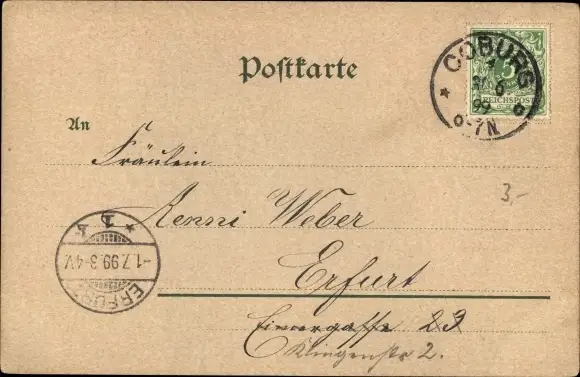 COBURG
1
30 6
99
6-7N.
5
REICHSPOST
Postkarte
An
Fräulein
Weber
Erfurt
3,-
-1.7.99.3-4V.
ERFURT
23
Klingenstr 2.